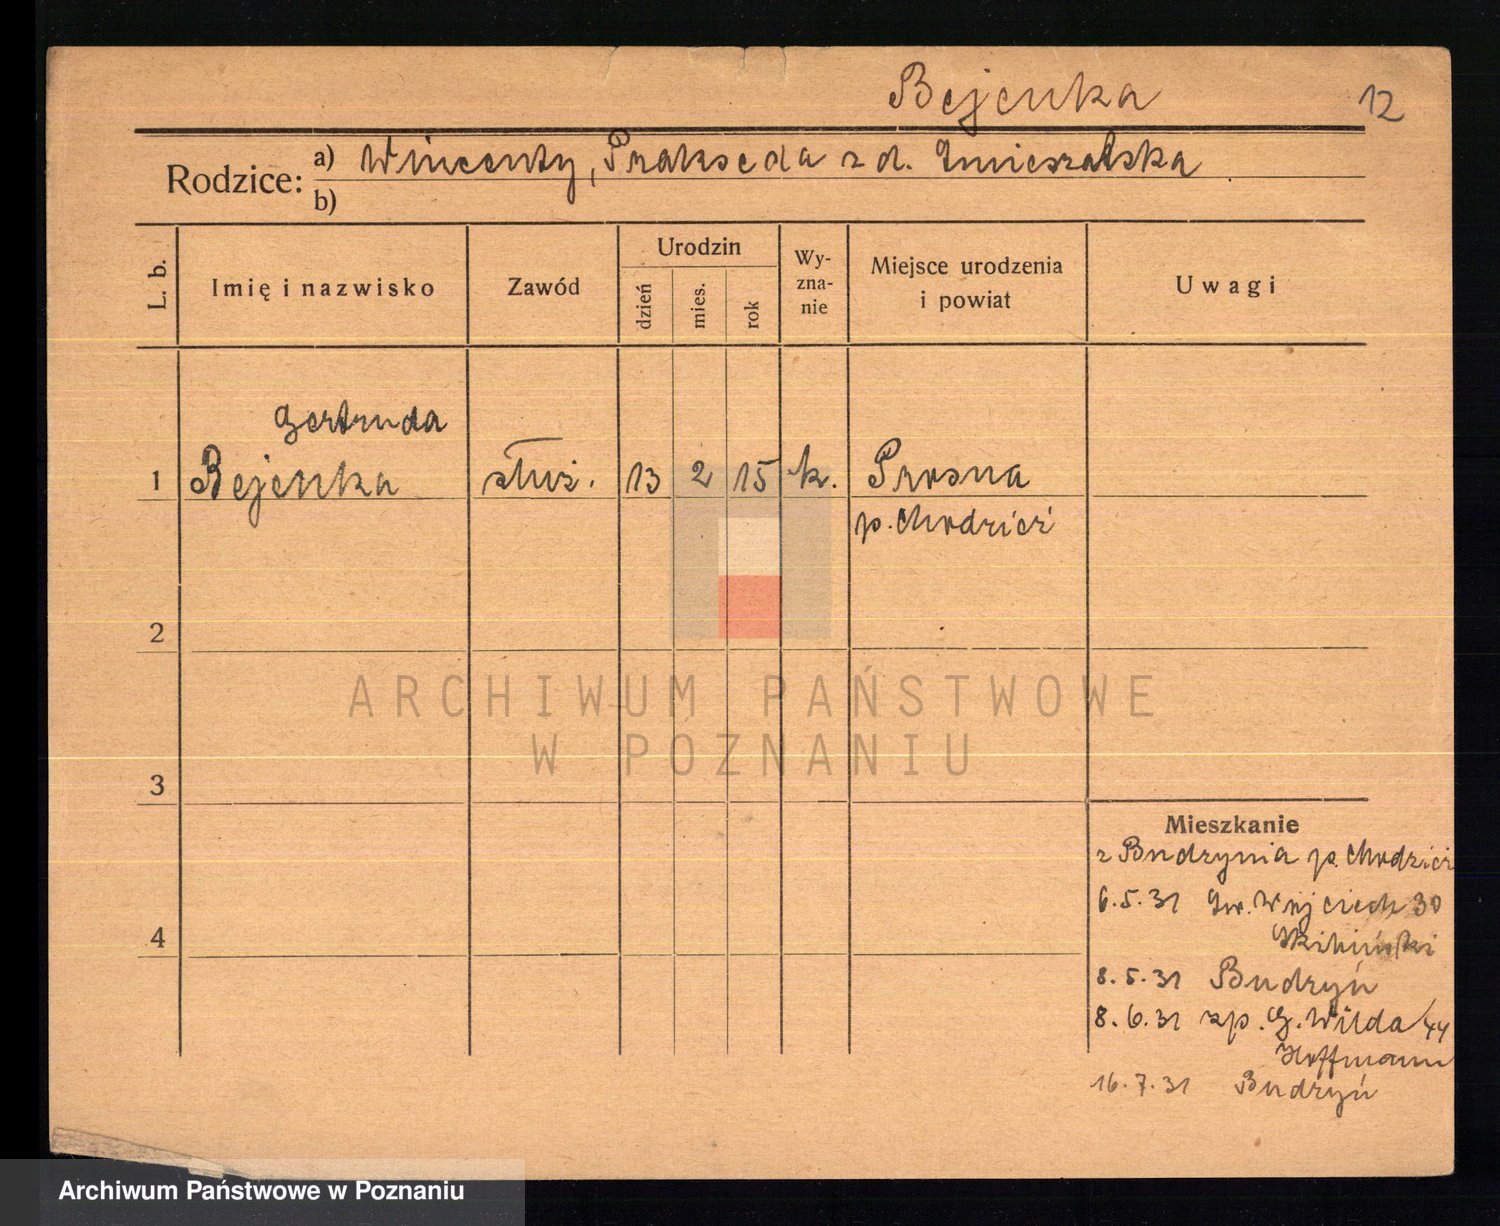 Bejenka 12
Rodzice: a) Wincenty, Prakseda z d.
b)
L. b.
Imię i nazwisko
Zawód
Urodzin
dzień
mies.
rok
Wy-
zna-
nie
Miejsce urodzenia
i powiat
Uwagi
Gertruda
1 Bejenka służ. 13 2 15 k. Prosna
p. Chodzież
2
3
4
Mieszkanie
z Budzynia p. Chodzież
6.5.31 Św. Wojciech 30
8.5.31 Budzyń
8.6.31 zp. G. Wilda 44
Hoffmann
16.7.31 Budzyń
ARCHIWUM PAŃSTWOWE
W POZNANIU
Archiwum Państwowe w Poznaniu